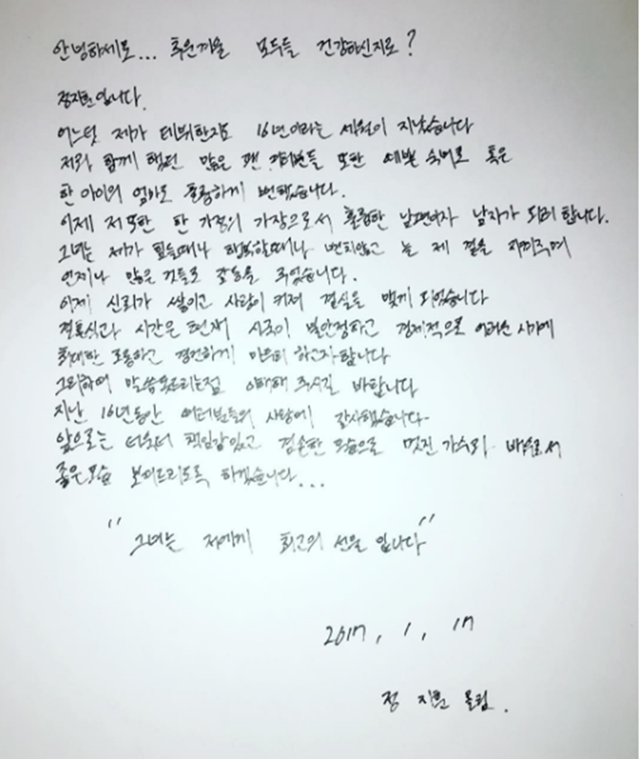 안녕하세요... 추운겨울 모두들 건강하신지요?
정지훈입니다.
어느덧 제가 데뷔한지도 16년이라는 세월이 지났습니다
저와 함께 했던 많은 팬 여러분들 또한 예쁜 숙녀로 혹은
한 아이의 엄마로 훌륭하게 변했습니다.
이제 저 또한 한 가정의 가장으로서 훌륭한 남편이자 남자가 되려 합니다.
그녀는 제가 힘들때나 행복할때나 변치않고 늘 제 곁을 지켜주며
언제나 많은 것들로 감동을 주었습니다.
이제 신뢰가 쌓이고 사랑이 커져 결실을 맺게 되었습니다
결혼식과 시간은 현재 시국이 불안정하고 경제적으로 어려운 시기에
최대한 조용하고 경건하게 마무리 하고자합니다
그리하여 말씀못드리는점 이해해 주시길 바랍니다
지난 16년동안 여러분들의 사랑에 감사했습니다.
앞으로는 더욱더 책임감있고 겸손한 모습으로 멋진 가수와 배우로서
좋은모습 보여드리도록 하겠습니다...
" 그녀는 저에게 최고의 선물 입니다 "
2017, 1, 17
정 지훈 올림.